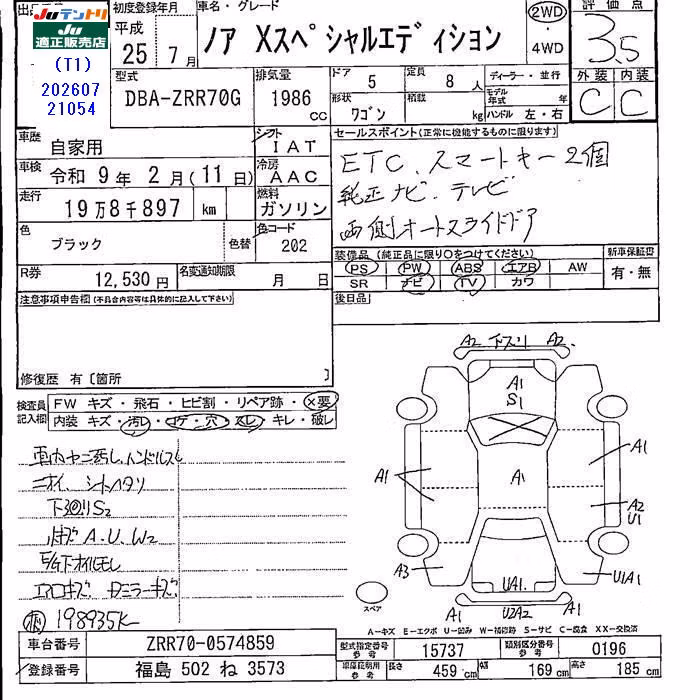 出品
JUテントリ
JU
適正販売店
(T1)
202607
21054
初度登録年月
平成
25年 7月
車名・グレード
ノア Xスペシャルエディション
2WD
・
4WD
評価点
3.5
外装 内装
C C
型式
DBA-ZRR70G
排気量
1986
CC
ドア 5
定員 8人
形状 ワゴン
積載 kg
ディーラー・並行
モデル年式 年
ハンドル 左・右
車歴 自家用
シフト IAT
車検 令和 9年 2月(11日)
冷房 AAC
走行 19万8千897 km
燃料 ガソリン
色 ブラック
色替
色コード 202
R券 12,530円
名変通知期限 月 日
セールスポイント(正常に機能するものに限ります)
ETC、スマートキー2個
純正ナビ、テレビ
両側オートスライドドア
装備品(純正品に限り○をつけてください)
新車保証書
PS PW ABS エアB AW
SR ナビ TV カワ
有・無
後日品
注意事項申告欄(不具合内容等は具体的に記入して下さい)
修復歴 有〔箇所 〕
検査員
記入欄
FW キズ・飛石・ヒビ割・リペア跡・×要
内装 キズ・汚レ・コゲ・穴・スレ・キレ・破レ
車内ヤニ汚レ、ハンドルスレ
ニオイ シートヘタリ
下廻りS2
キズ A.U.W2
E/G下オイルモレ
エアロキズ ドアミラーキズ
198935K
A2 下スリ A2
A1
S1
A1
A1
A1
A2
U1
A3
U1A1
UA1
A1 U2A2 A1
スペア
A-キズ E-エクボ U-凹み W-補修跡 S-サビ C-腐食 XX-交換済
車台番号 ZRR70-0574859
型式指定番号参考 15737
類別区分番号参考 0196
登録番号 福島 502 ね 3573
車庫証明用参考 長さ 459cm 幅 169cm 高さ 185cm